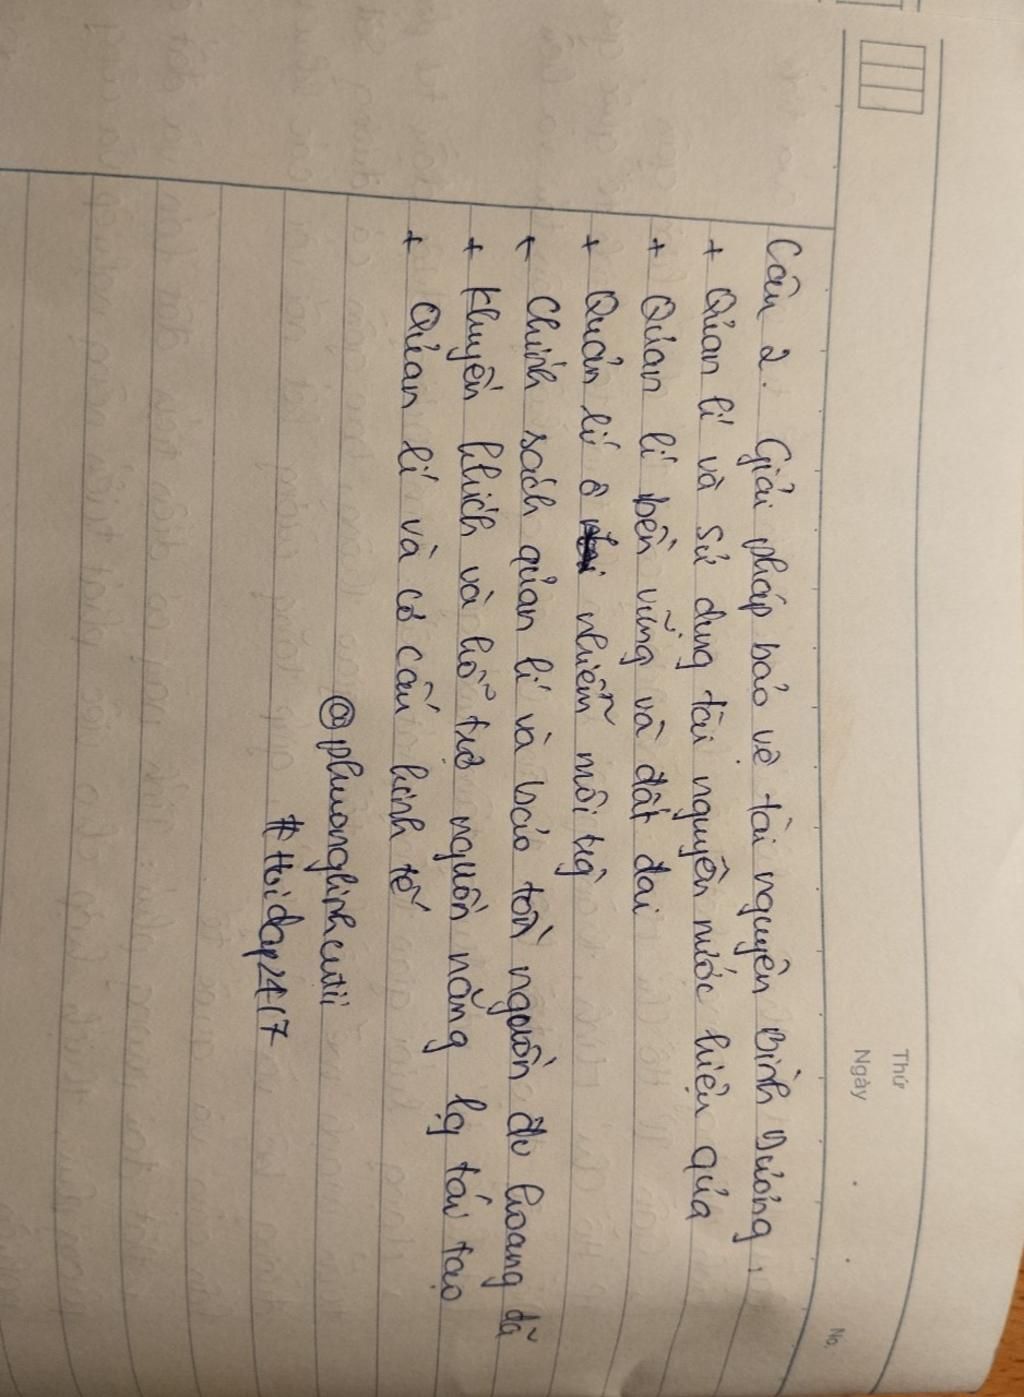 Thứ
Ngày
No.
Câu 2. Giải pháp bảo vệ tài nguyên Bình Dương,
+ Quản lí và sử dụng tài nguyên nước hiệu quả
+ Quản lí bền vững và đất đai
+ Quản lí ô nhiễm môi trg
+ Chính sách quản lí và bảo tồn nguồn đv hoang dã
+ Khuyến khích và hỗ trợ nguồn năng lg tái tạo
+ Quản lí và cơ cấu kinh tế
@phuonglinhcutii
#Hoidap24/7